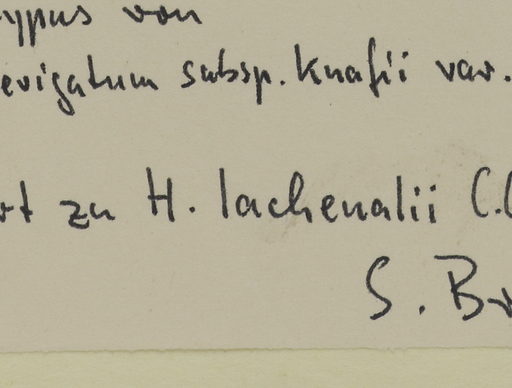 ypus von
evigatum subsp. knafii var.
rt zu H. lachenalii C.C
S. Br